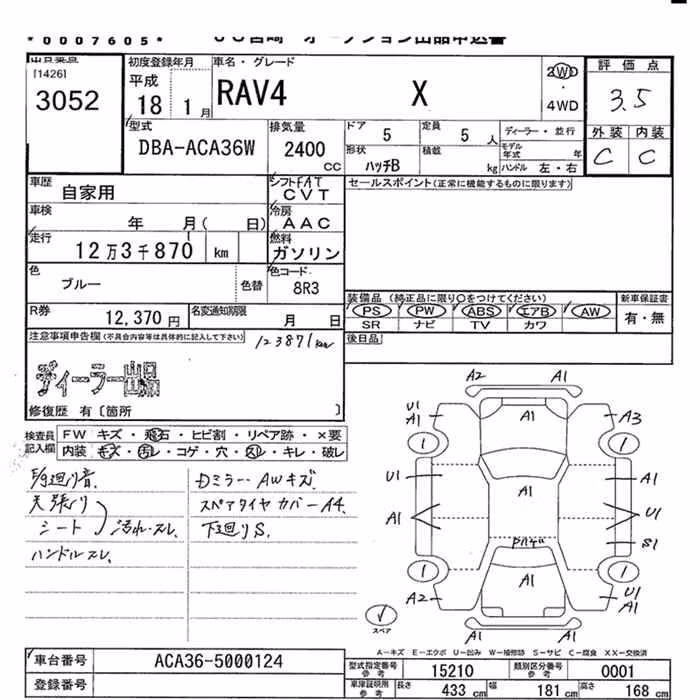 *0007605*
出品申込書
[1426]
3052
初度登録年月
平成
18 1月
車名・グレード
RAV4 X
2WD
・
4WD
評価点
3.5
外装 内装
C C
型式
DBA-ACA36W
排気量
2400
CC
ドア 5
定員 5 人
ディーラー・並行
形状 ハッチB
積載 kg
モデル年式 年
ハンドル 左・右
車歴 自家用
シフト FAT
CVT
セールスポイント(正常に機能するものに限ります)
車検 年 月( 日)
冷房 AAC
走行 12万3千870 km
燃料 ガソリン
色 ブルー 色替
色コード 8R3
R券 12,370円
名変通知期限 月 日
装備品 (純正品に限り○をつけてください)
PS PW ABS エアB AW
SR ナビ TV カワ
新車保証書
有・無
注意事項申告欄(不具合内容等は具体的に記入して下さい)
123871km
後日品
ディーラー出品
修復歴 有〔箇所 〕
検査員記入欄
FW キズ・飛石・ヒビ割・リペア跡・×要
内装 キズ・汚レ・コゲ・穴・スレ・キレ・破レ
天張り
シート 汚れ・スレ
ハンドルスレ
Dミラー・AWキズ
スペアタイヤカバーA4
下廻りS
A2 A1
U1 A1 A1 A3
1 1
U1 A1 A1
A1 U1
S1
1 1
A2 A1 U1 A1
A1
スペア
A-キズ E-エクボ U-凹み W-補修跡 S-サビ C-腐食 XX-交換済
車台番号 ACA36-5000124
登録番号
型式指定番号 参考 15210
類別区分番号 参考 0001
車庫証明用 参考 長さ 433 cm 幅 181 cm 高さ 168 cm